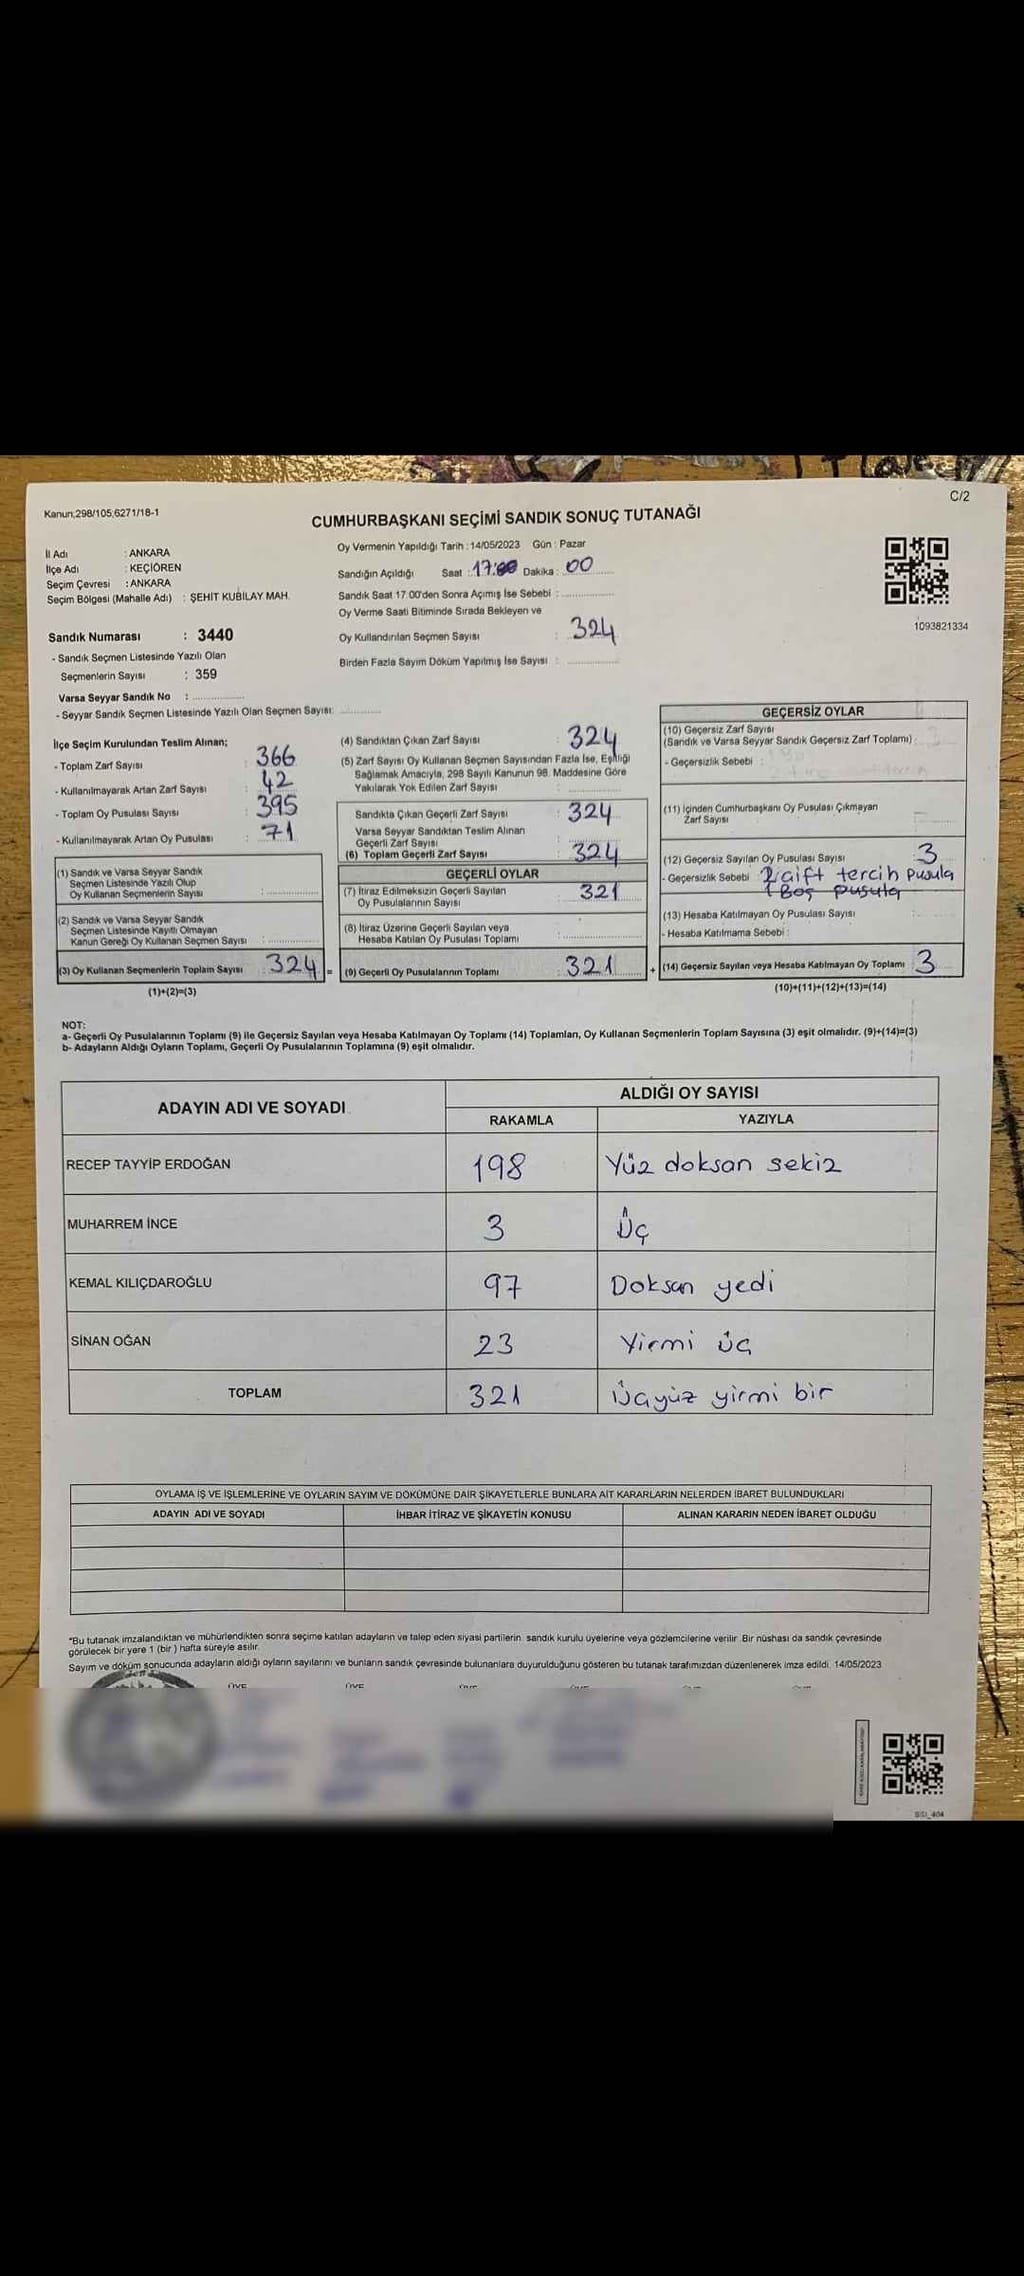 C/2
Kanun;298/105;6271/18-1
CUMHURBAŞKANI SEÇİMİ SANDIK SONUÇ TUTANAĞI
İl Adı : ANKARA
İlçe Adı : KEÇİÖREN
Seçim Çevresi : ANKARA
Seçim Bölgesi (Mahalle Adı) : ŞEHİT KUBİLAY MAH.
Sandık Numarası : 3440
- Sandık Seçmen Listesinde Yazılı Olan
Seçmenlerin Sayısı : 359
Varsa Seyyar Sandık No :
- Seyyar Sandık Seçmen Listesinde Yazılı Olan Seçmen Sayısı:
Oy Vermenin Yapıldığı Tarih : 14/05/2023 Gün : Pazar
Sandığın Açıldığı Saat : 17:00 Dakika : 00
Sandık Saat 17.00'den Sonra Açımış İse Sebebi :
Oy Verme Saati Bitiminde Sırada Bekleyen ve
Oy Kullandırılan Seçmen Sayısı : 324
Birden Fazla Sayım Döküm Yapılmış İse Sayısı :
1093821334
İlçe Seçim Kurulundan Teslim Alınan;
- Toplam Zarf Sayısı : 366
- Kullanılmayarak Artan Zarf Sayısı : 42
- Toplam Oy Pusulası Sayısı : 395
- Kullanılmayarak Artan Oy Pusulası : 71
(1) Sandık ve Varsa Seyyar Sandık
Seçmen Listesinde Yazılı Olup
Oy Kullanan Seçmenlerin Sayısı :
(2) Sandık ve Varsa Seyyar Sandık
Seçmen Listesinde Kayıtlı Olmayan
Kanun Gereği Oy Kullanan Seçmen Sayısı :
(3) Oy Kullanan Seçmenlerin Toplam Sayısı : 324 =
(1)+(2)=(3)
(4) Sandıktan Çıkan Zarf Sayısı : 324
(5) Zarf Sayısı Oy Kullanan Seçmen Sayısından Fazla İse, Eşitliği
Sağlamak Amacıyla, 298 Sayılı Kanunun 98. Maddesine Göre
Yakılarak Yok Edilen Zarf Sayısı :
Sandıkta Çıkan Geçerli Zarf Sayısı : 324
Varsa Seyyar Sandıktan Teslim Alınan
Geçerli Zarf Sayısı :
(6) Toplam Geçerli Zarf Sayısı : 324
GEÇERLİ OYLAR
(7) İtiraz Edilmeksizin Geçerli Sayılan : 321
Oy Pusulalarının Sayısı
(8) İtiraz Üzerine Geçerli Sayılan veya
Hesaba Katılan Oy Pusulası Toplamı :
(9) Geçerli Oy Pusulalarının Toplamı : 321 +
GEÇERSİZ OYLAR
(10) Geçersiz Zarf Sayısı
(Sandık ve Varsa Seyyar Sandık Geçersiz Zarf Toplamı) :
- Geçersizlik Sebebi :
(11) İçinden Cumhurbaşkanı Oy Pusulası Çıkmayan
Zarf Sayısı :
(12) Geçersiz Sayılan Oy Pusulası Sayısı : 3
- Geçersizlik Sebebi 2 çift tercih pusula
1 Boş pusula
(13) Hesaba Katılmayan Oy Pusulası Sayısı :
- Hesaba Katılmama Sebebi :
(14) Geçersiz Sayılan veya Hesaba Katılmayan Oy Toplamı : 3
(10)+(11)+(12)+(13)=(14)
NOT:
a- Geçerli Oy Pusulalarının Toplamı (9) ile Geçersiz Sayılan veya Hesaba Katılmayan Oy Toplamı (14) Toplamları, Oy Kullanan Seçmenlerin Toplam Sayısına (3) eşit olmalıdır. (9)+(14)=(3)
b- Adayların Aldığı Oyların Toplamı, Geçerli Oy Pusulalarının Toplamına (9) eşit olmalıdır.
ADAYIN ADI VE SOYADI
ALDIĞI OY SAYISI
RAKAMLA YAZIYLA
RECEP TAYYİP ERDOĞAN 198 Yüz doksan sekiz
MUHARREM İNCE 3 Üç
KEMAL KILIÇDAROĞLU 97 Doksan yedi
SİNAN OĞAN 23 Yirmi üç
TOPLAM 321 Üçyüz yirmi bir
OYLAMA İŞ VE İŞLEMLERİNE VE OYLARIN SAYIM VE DÖKÜMÜNE DAİR ŞİKAYETLERLE BUNLARA AİT KARARLARIN NELERDEN İBARET BULUNDUKLARI
ADAYIN ADI VE SOYADI İHBAR İTİRAZ VE ŞİKAYETİN KONUSU ALINAN KARARIN NEDEN İBARET OLDUĞU
*Bu tutanak imzalandıktan ve mühürlendikten sonra seçime katılan adayların ve talep eden siyasi partilerin sandık kurulu üyelerine veya gözlemcilerine verilir. Bir nüshası da sandık çevresinde
görülecek bir yere 1 (bir ) hafta süreyle asılır.
Sayım ve döküm sonucunda adayların aldığı oyların sayılarını ve bunların sandık çevresinde bulunanlara duyurulduğunu gösteren bu tutanak tarafımızdan düzenlenerek imza edildi. 14/05/2023